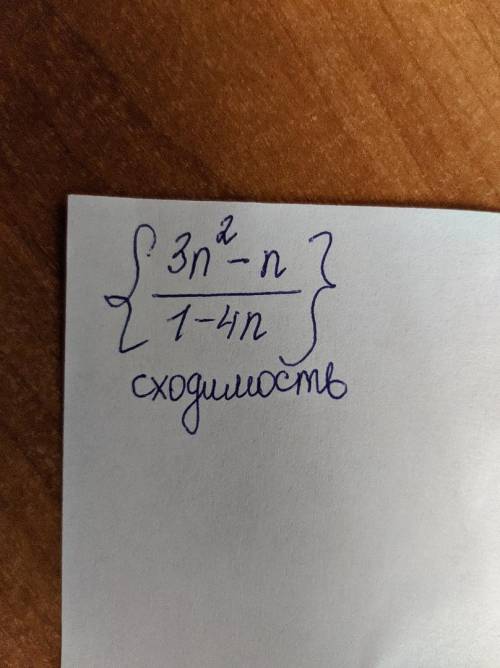 { (3n² - n) / (1 - 4n) }
сходимость